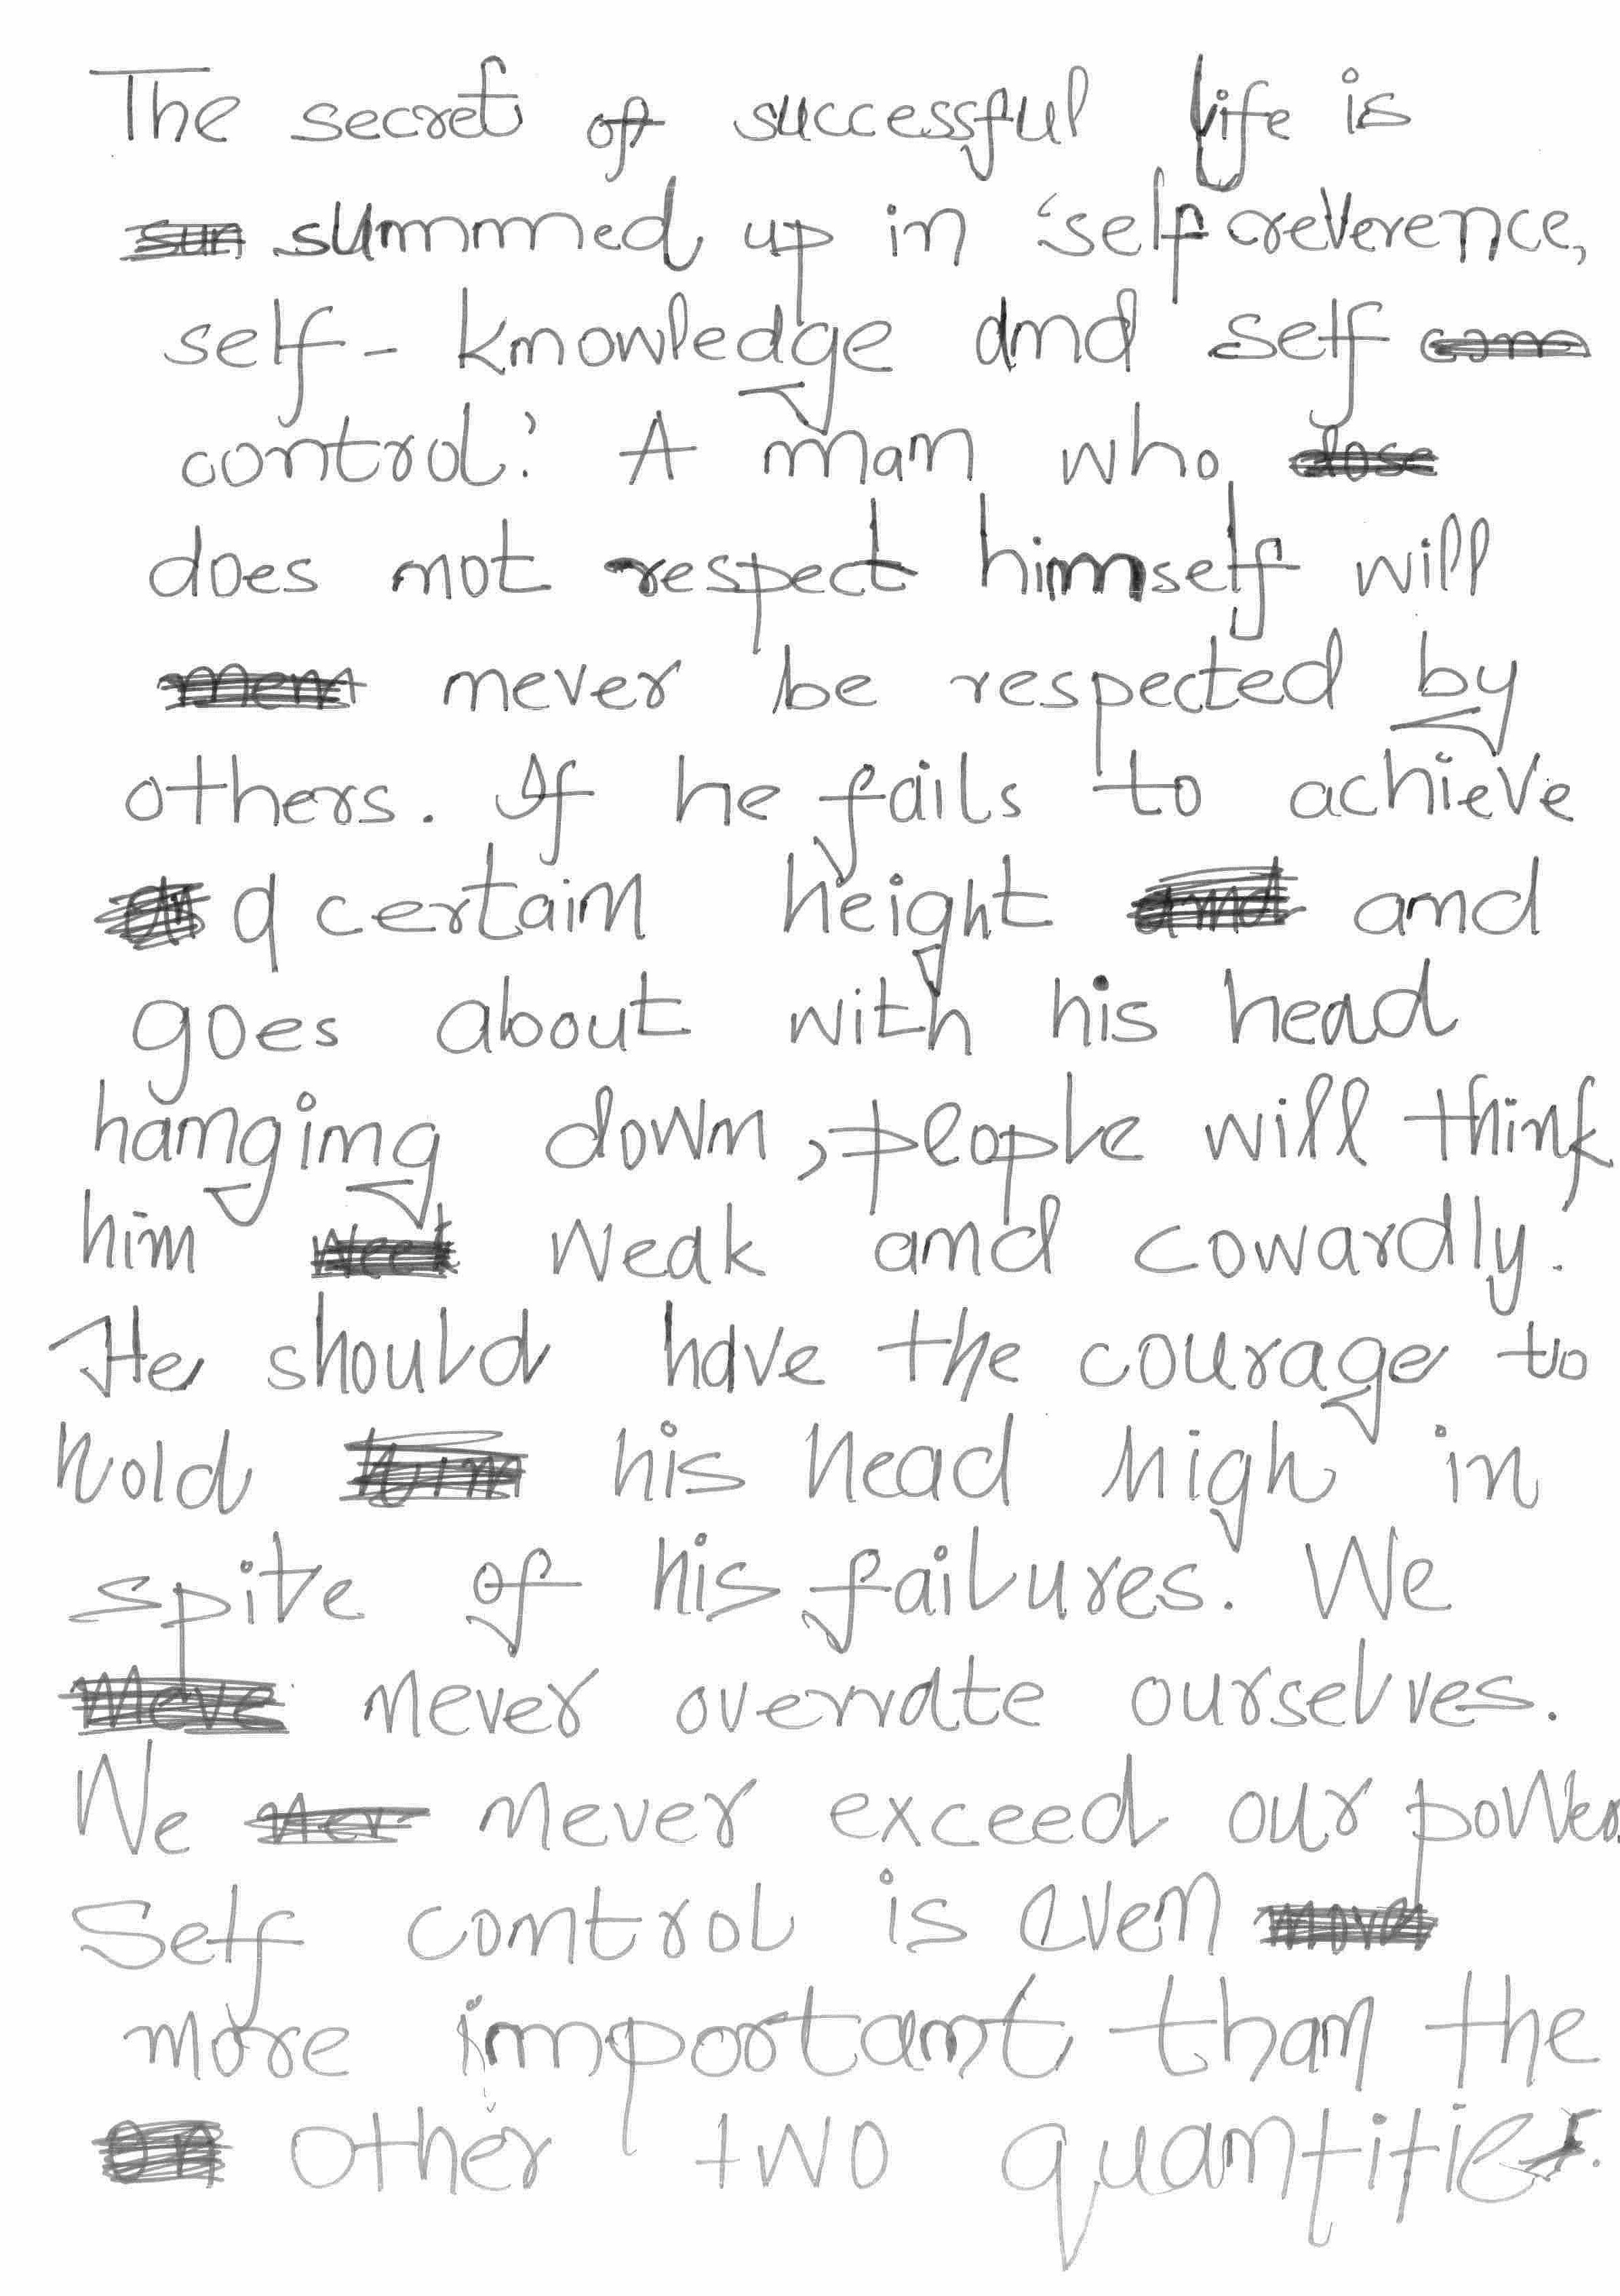 The secret of successful life is
summed up in 'self reverence,
self - knowledge and self
control.' A man who
does not respect himself will
never be respected by
others. If he fails to achieve
a certain height and
goes about with his head
hanging down, people will think
him weak and cowardly.
He should have the courage to
hold his head high in
spite of his failures. We
never overrate ourselves.
We never exceed our power.
Self control is even
more important than the
other two quantities.